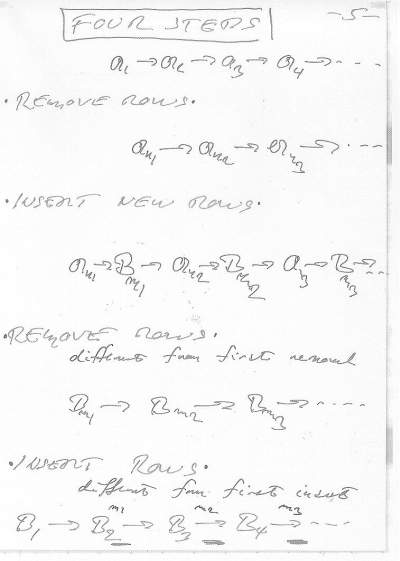 FOUR STEPS
-5-
a1 → a2 → a3 → a4 → - - -
· REMOVE ROWS ·
an1 → an2 → an3 → · - - -
· INSERT NEW ROWS ·
an1 → Bm1 → an2 → Bm2 → an3 → Bm3 → - - -
· REMOVE ROWS ·
different from first removal
Bm1 → Bm2 → Bm3 → - - - -
· INSERT ROWS ·
different from first insert
m1 m2 m3
B1 → B2 → B3 → B4 → - - -